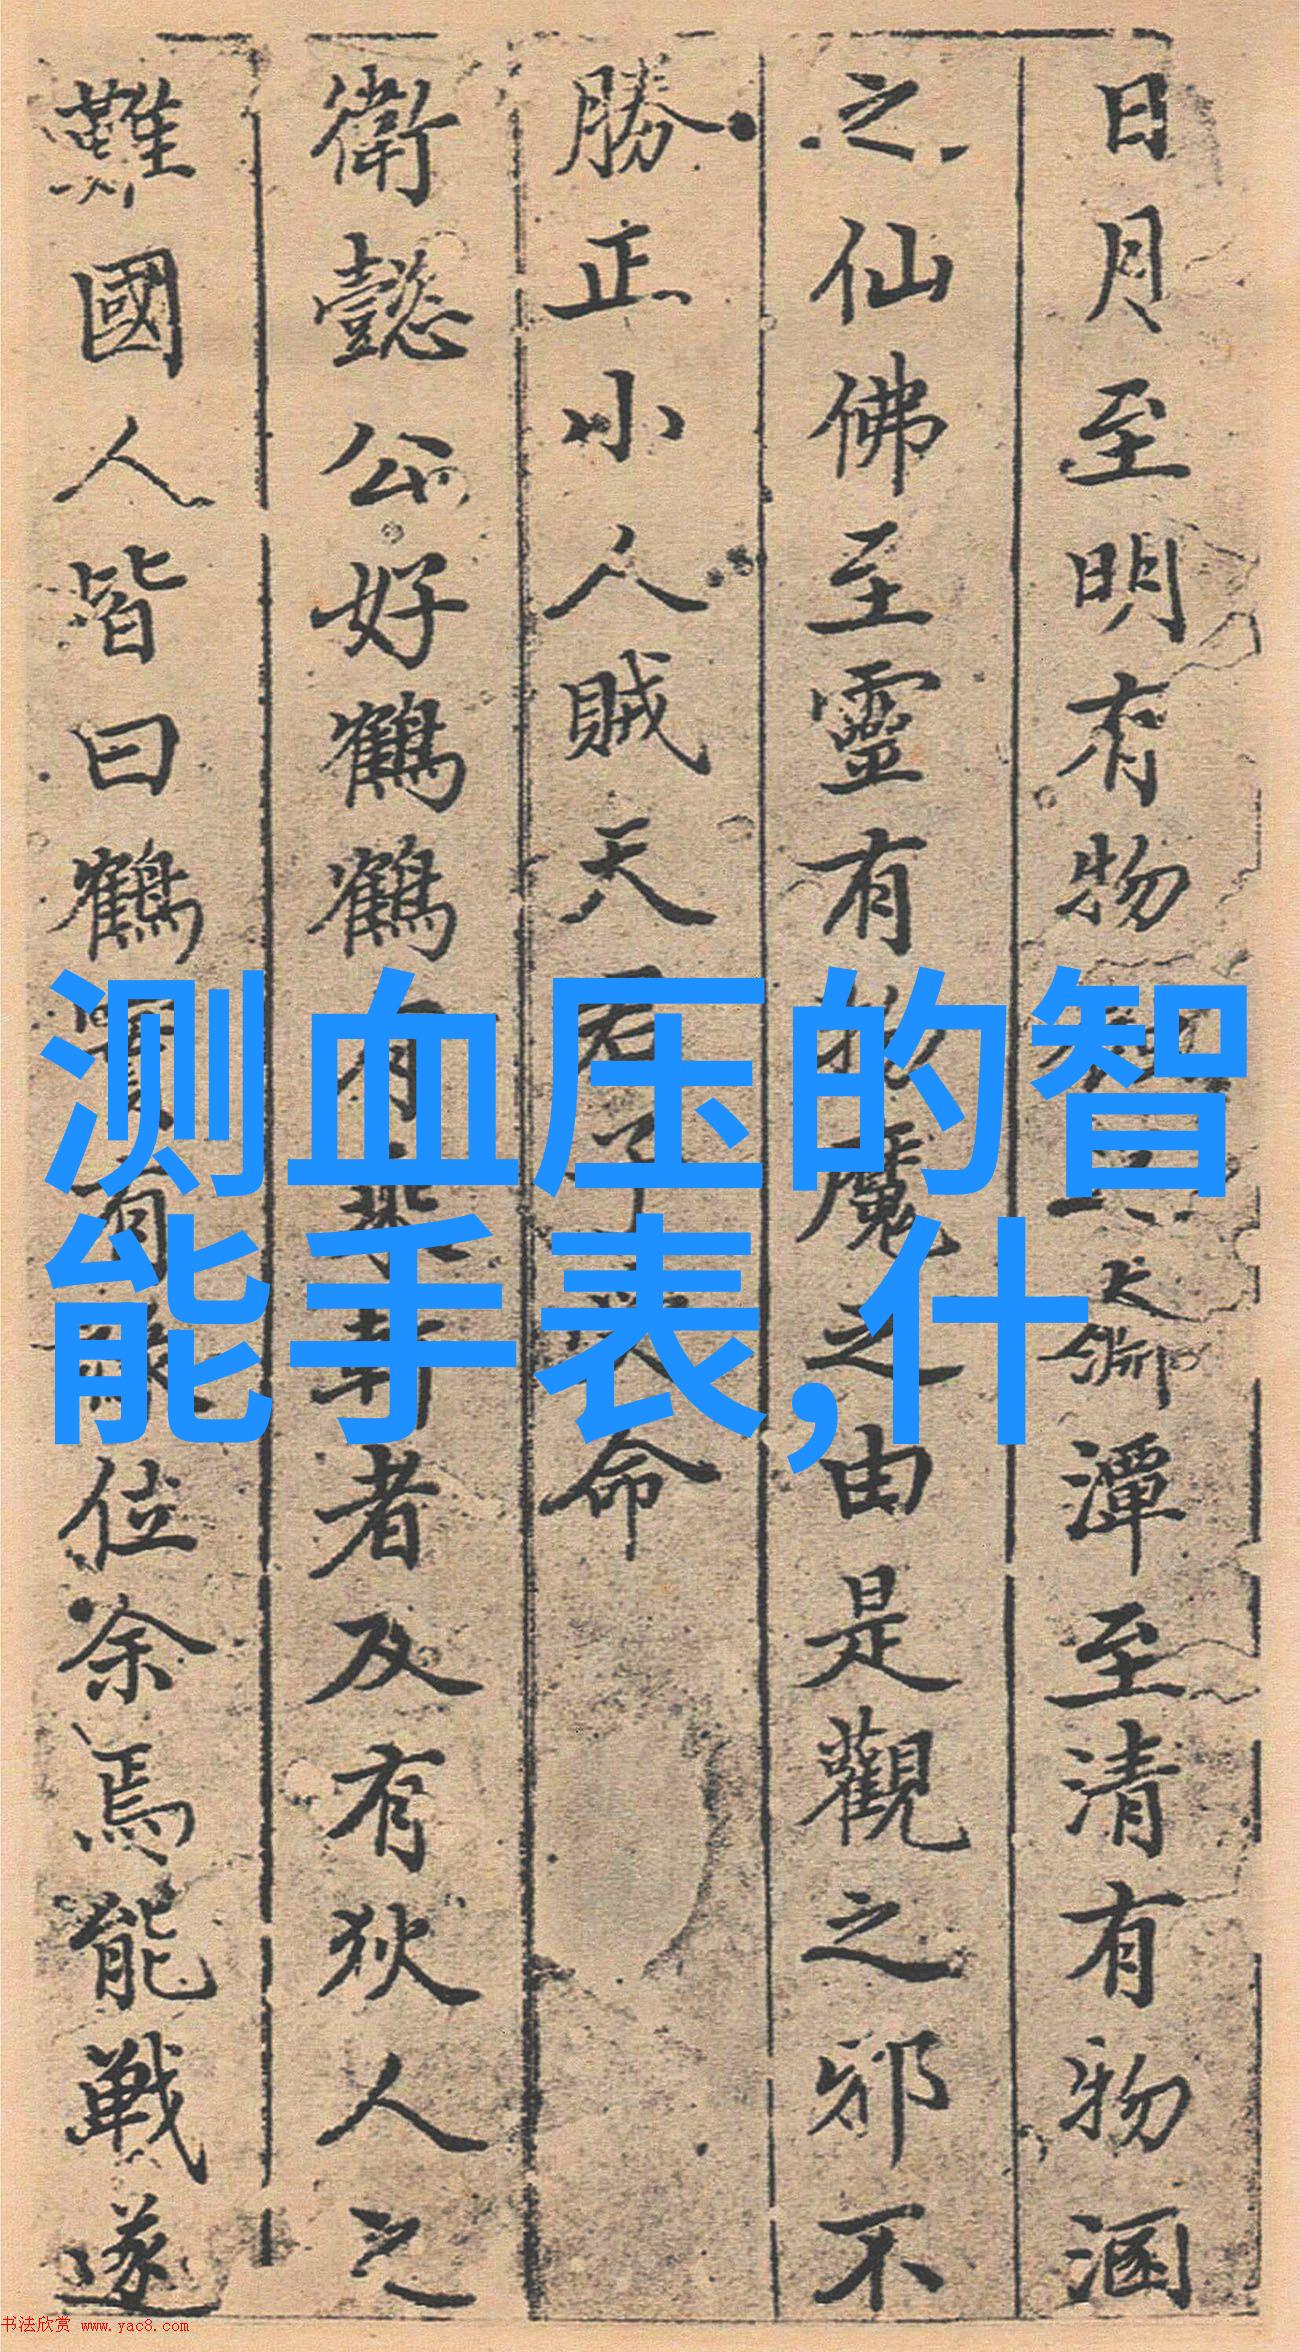 日月至明有物
潭至清有物涵
之仙佛至靈有
魔之由是觀之邪不
勝正小人賊天
命
衛懿公好鶴鶴
者及有狄人之
難國人皆曰鶴
位余焉能戰遂
测血压的智
能手表,什
书法欣赏 www.yac8.com